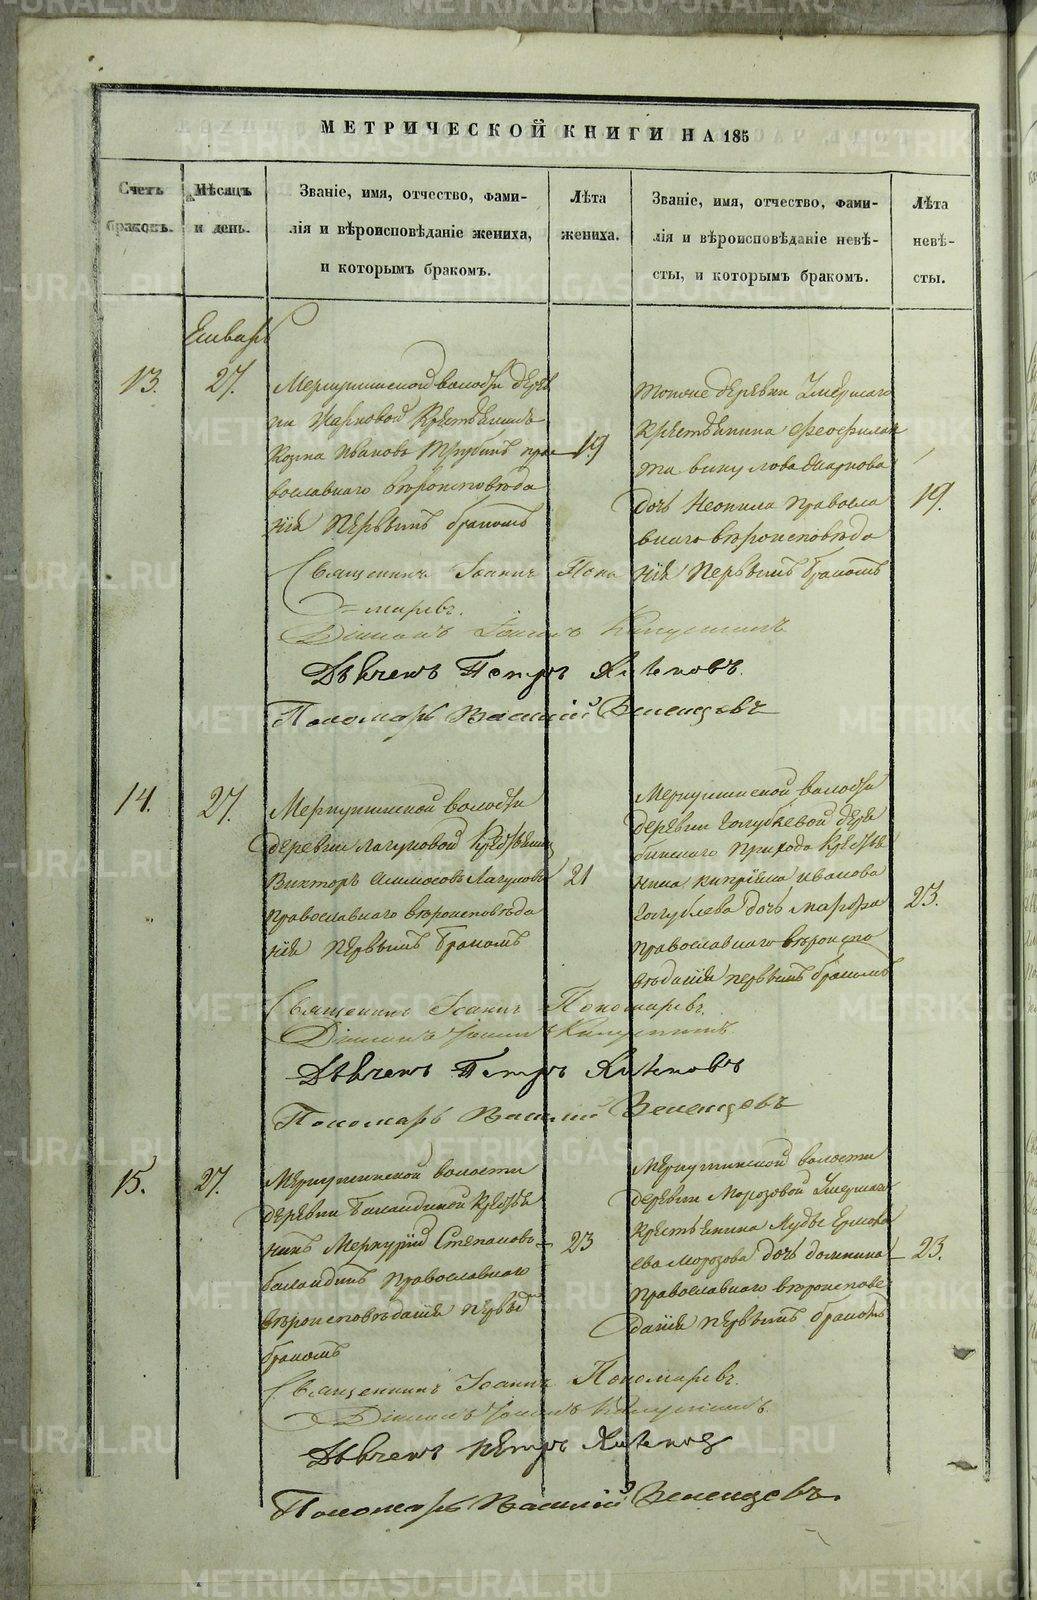 МЕТРИЧЕСКОЙ КНИГИ НА 185
Счетъ
браковъ.
Мѣсяцъ
и день.
Званіе, имя, отчество, фами-
лія и вѣроисповѣданіе жениха,
и которымъ бракомъ.
Лѣта
жениха.
Званіе, имя, отчество, фами-
лія и вѣроисповѣданіе невѣ-
сты, и которымъ бракомъ.
Лѣта
невѣ-
сты.
Январь
13.
27.
Меркушинской волости дерев
ни Жарковой Крестьянинъ
Козма Ивановъ Трубинъ пра
вославнаго вѣроисповѣда
нія первымъ бракомъ
19
тойже деревни Умершаго
Крестьянина Феофилак
та Викулова Жаркова
дочь Неонила Правосла
внаго вѣроисповѣда
нія Первымъ бракомъ
19.
Священникъ Іоаннъ Поно
=маревъ.
Діаконъ Іоаннъ
Дьячекъ Петръ
Пономарь Василій Зеленцовъ
14.
27.
Меркушинской волости
деревни Лагуновой Крестьянинъ
Викторъ Лагуновъ
православнаго вѣроисповѣда
нія первымъ бракомъ
21
Меркушинской волости
деревни Голубевой Деря
бинскаго Прихода Крестья
нина Кипріяна Иванова
Голублева дочь Марфа
православнаго вѣроиспо
вѣданія первымъ бракомъ
23.
Священникъ Іоаннъ Пономаревъ.
Діаконъ Іоаннъ
Дьячекъ Петръ
Пономарь Василій Зеленцовъ
15.
27.
Меркушинской волости
деревни Баландиной Крестья
нинъ Меркурій Степановъ
Баландинъ Православнаго
вѣроисповѣданія первы
бракомъ
23
Меркушинской волости
деревни Морозовой Умершаго
Крестьянина Іуды Ермола
ева Морозова дочь Домнина
православнаго вѣроисповѣ
данія первымъ бракомъ
23.
Священникъ Іоаннъ Пономаревъ.
Діаконъ Іоаннъ
Дьячекъ Петръ
Пономарь Василій Зеленцовъ.
METRIKI.GASO-URAL.RU